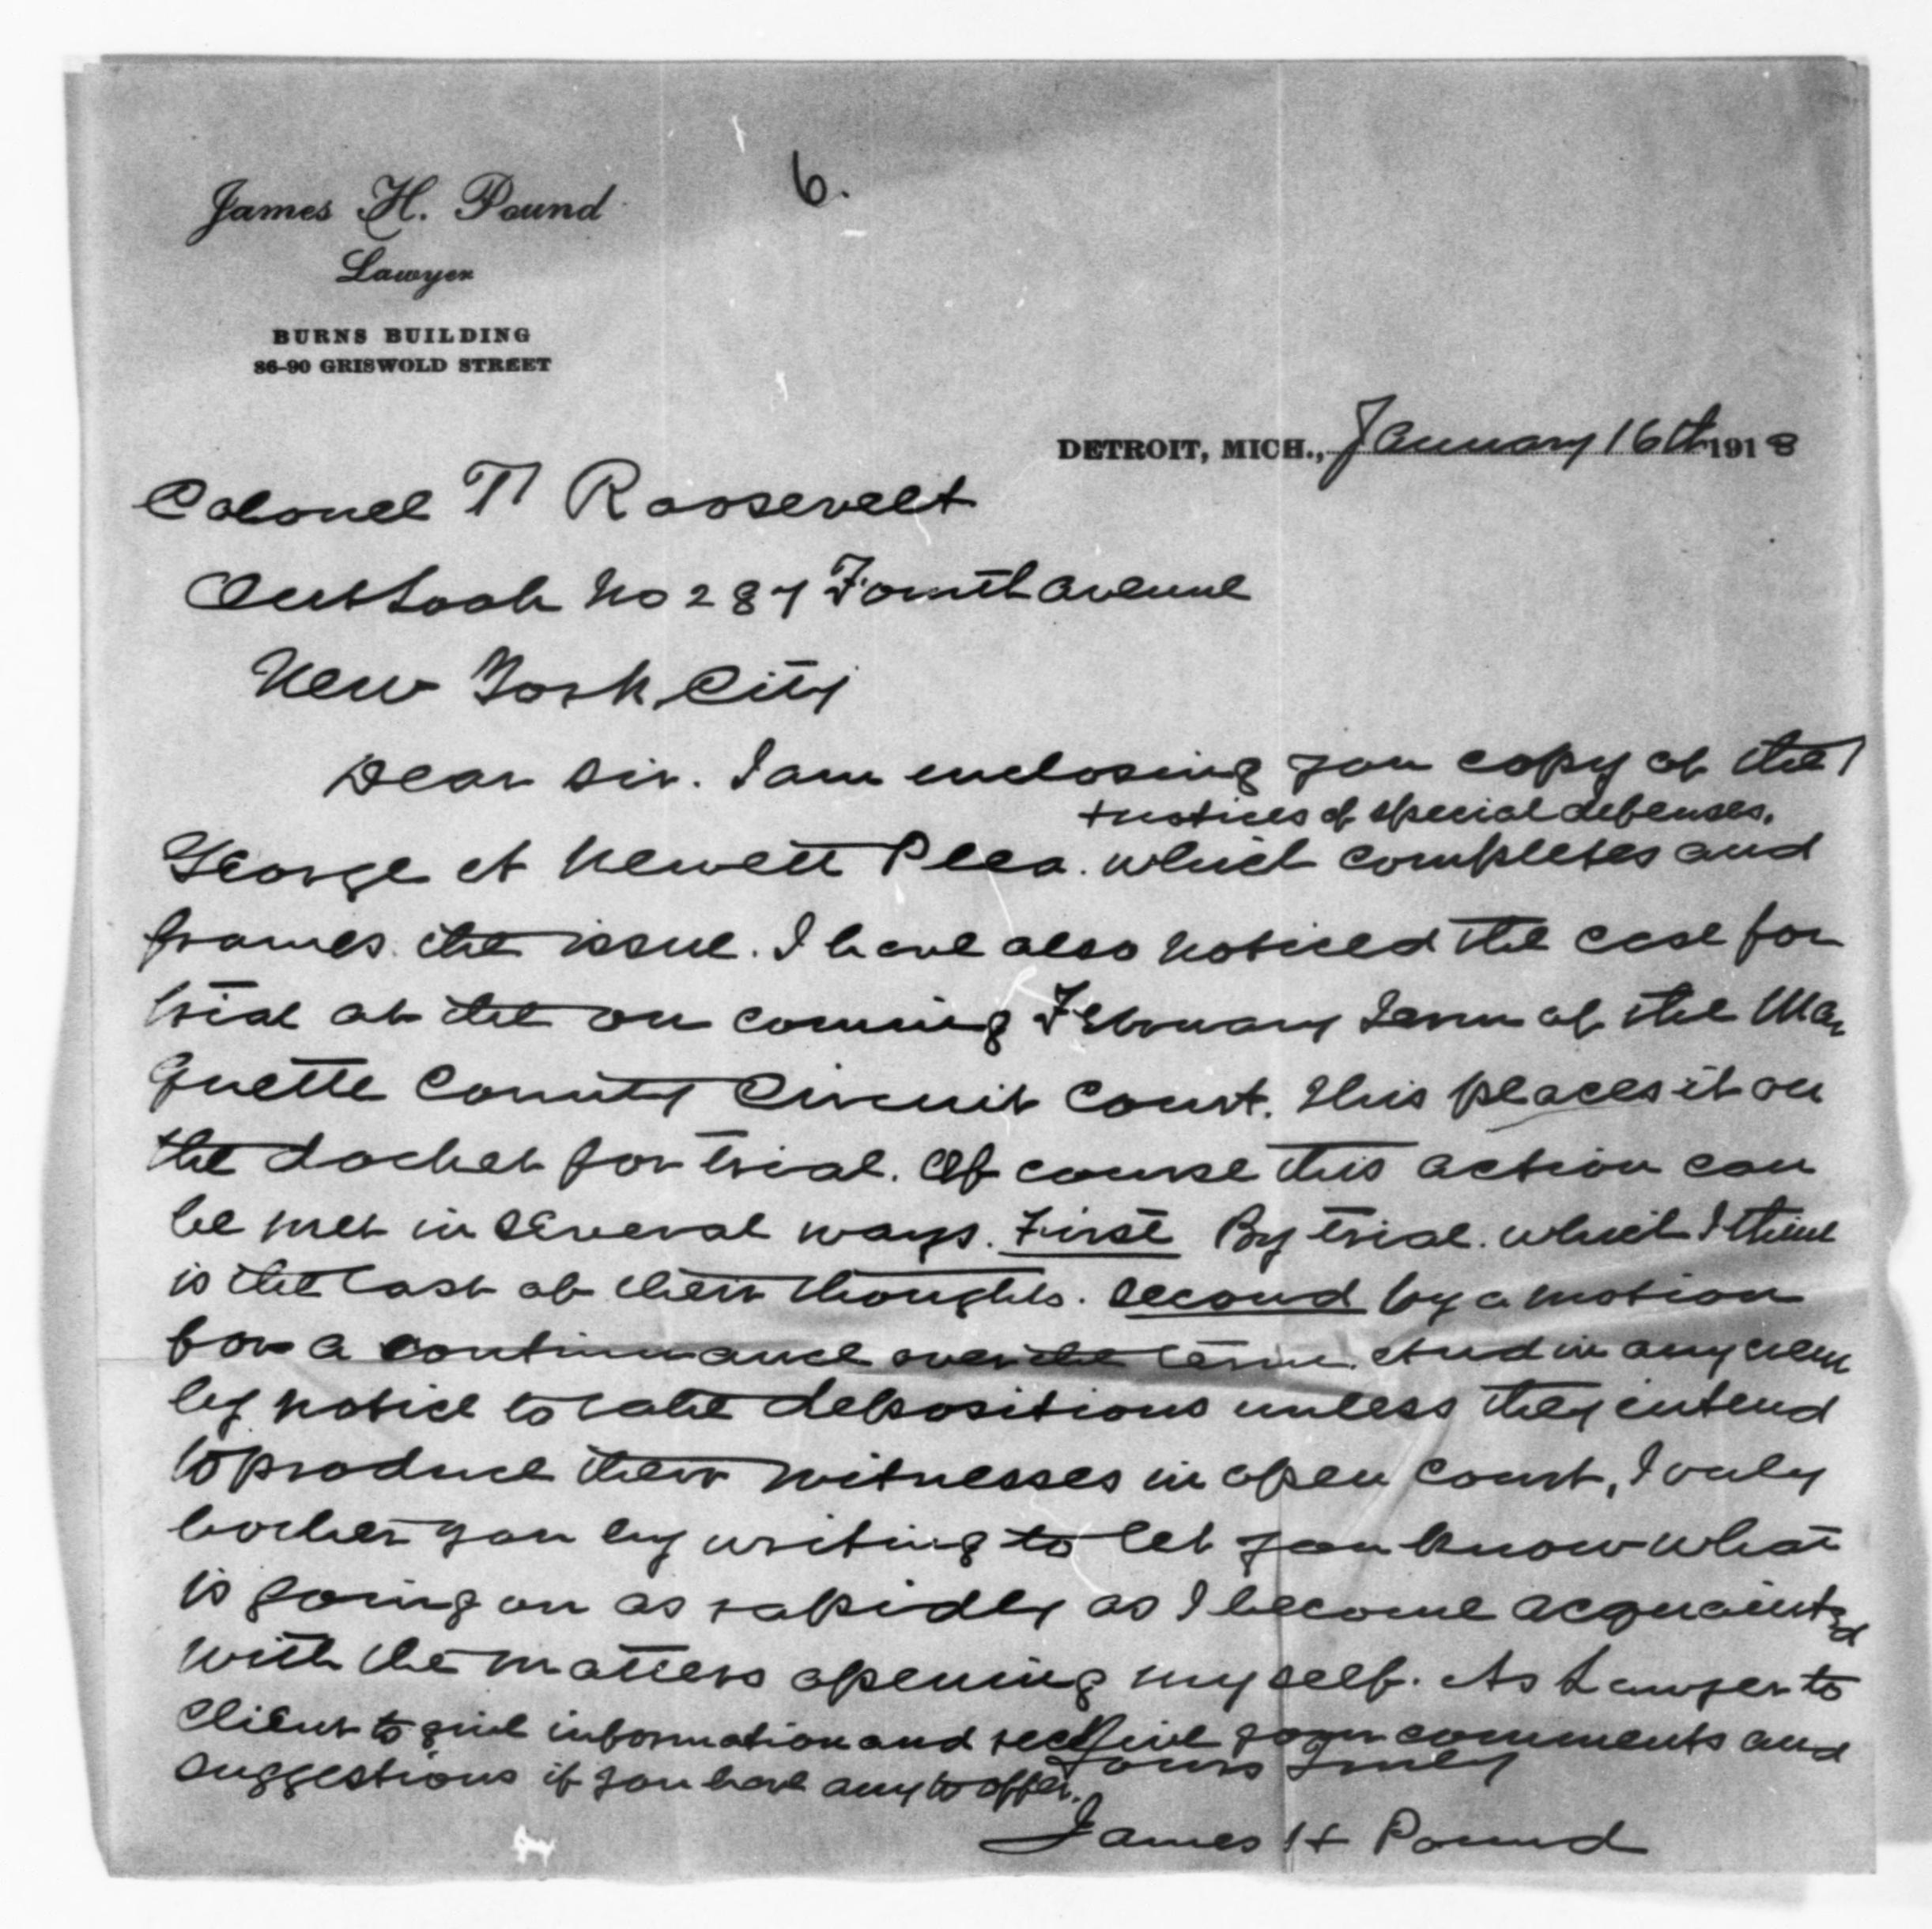 6.
James H. Pound
Lawyer
BURNS BUILDING
86-90 GRISWOLD STREET
DETROIT, MICH., January 16th 1913
Colonel T Roosevelt
Outlook No 287 Fourth Avenue
New York City
Dear Sir. I am enclosing you copy of the
+ notices of special defenses.
George A Newett Plea. which completes and
frames the issue. I have also noticed the case for
trial at the on coming February Term of the Mar
quette County Circuit Court. This places it on
the docket for trial. Of course this action can
be met in several ways. First By trial. which I think
is the last of their thoughts. Second by a motion
for a continuance over the term. And in any event
by notice to take depositions unless they intend
to produce their witnesses in open Court, I only
bother you by writing to let you know what
is going on as rapidly as I become acquainted
with the matters opening myself. As Lawyer to
Client to give information and receive your comments and
suggestions if you have any to offer.
Yours Truly
James H Pound